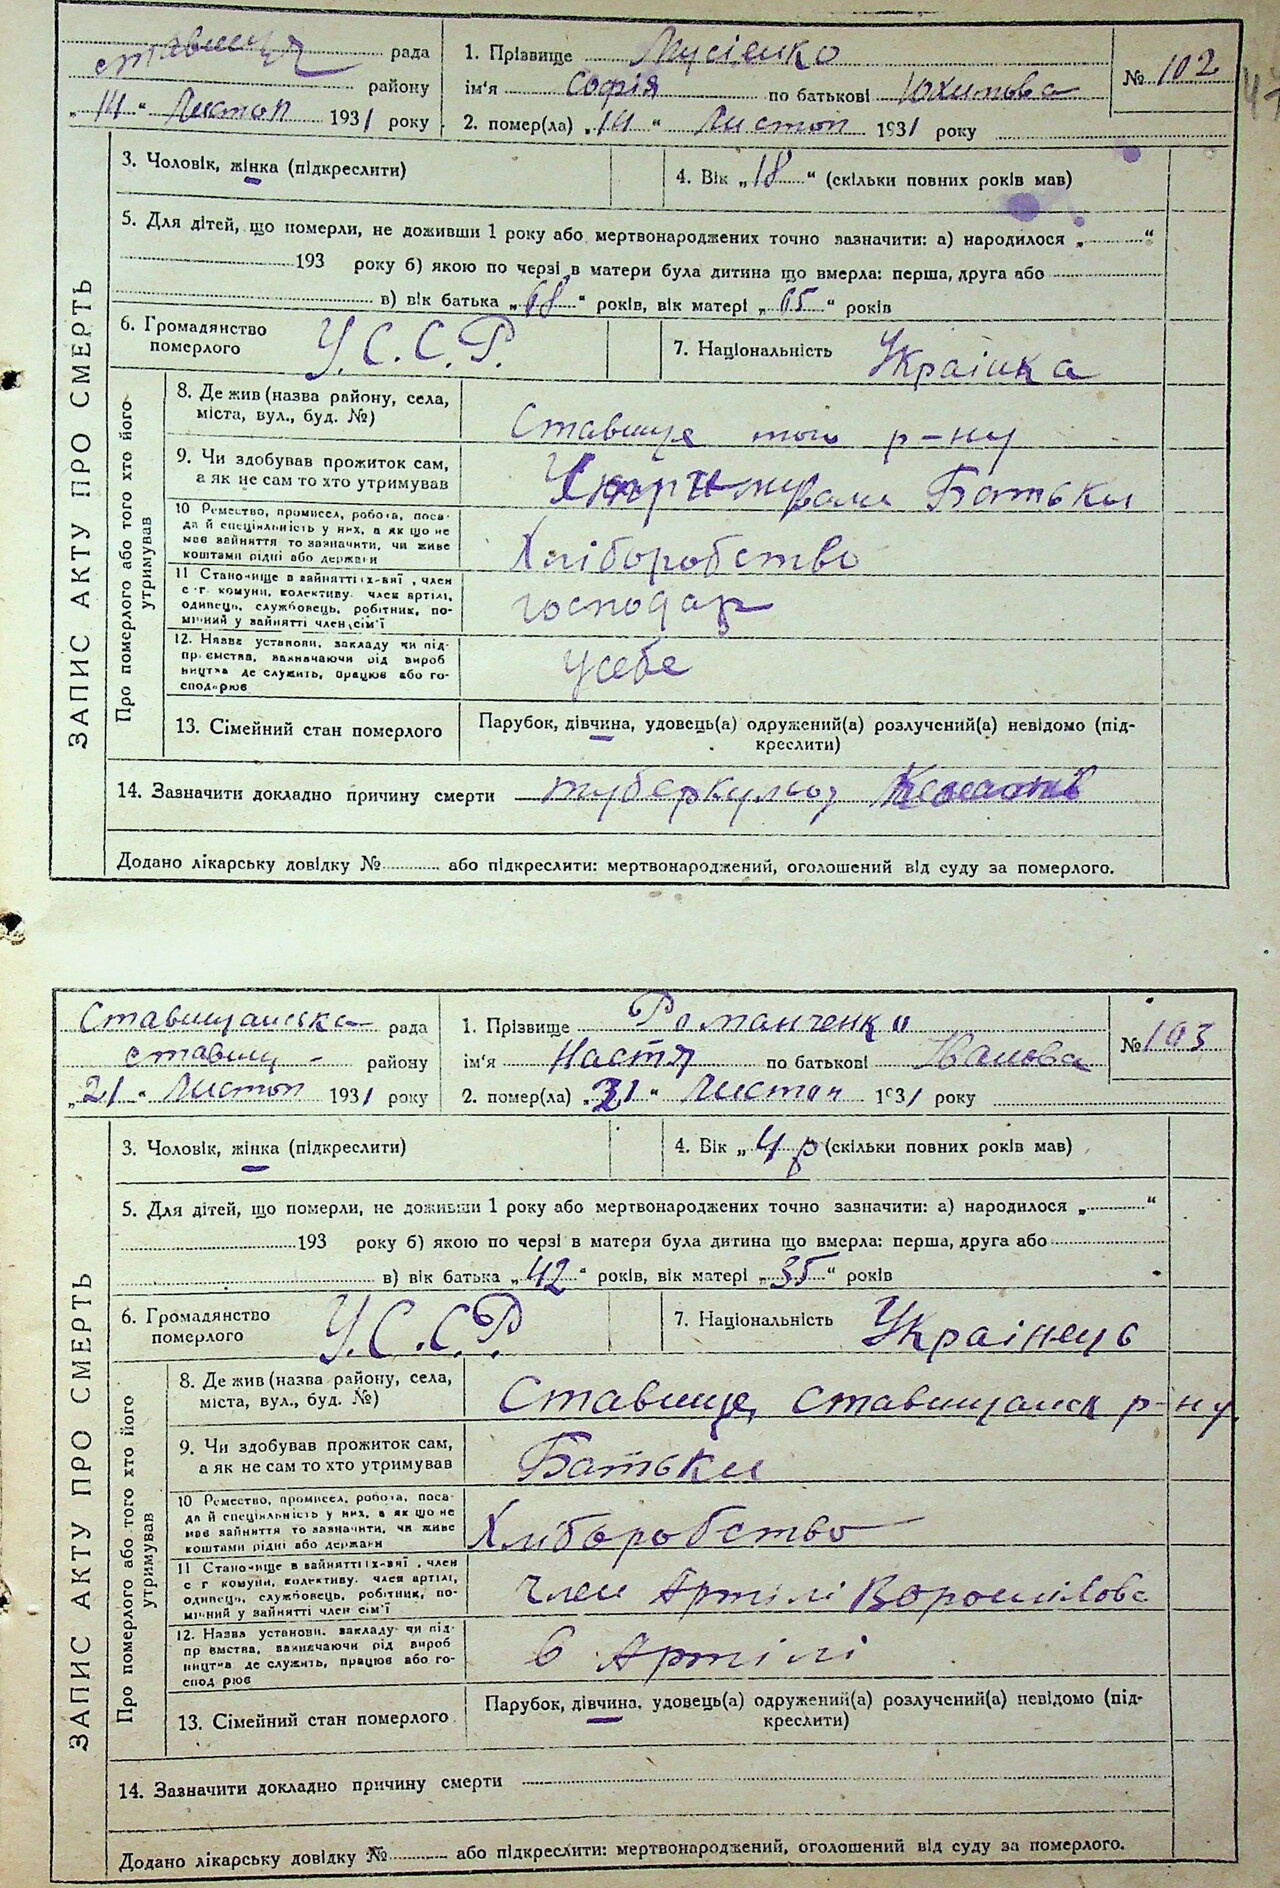 ставищ рада
району
„14“ Листоп 1931 року
1. Прізвище Мусієнко
ім'я Софія по батькові Юхимова
2. помер(ла) „14“ Листоп 1931 року
№ 102
47
ЗАПИС АКТУ ПРО СМЕРТЬ
3. Чоловік, жінка (підкреслити)
4. Вік „18“ (скільки повних років мав)
5. Для дітей, що померли, не доживши 1 року або мертвонароджених точно зазначити: а) народилося „ “
193 року б) якою по черзі в матери була дитина що вмерла: перша, друга або
в) вік батька „68“ років, вік матері „65“ років
6. Громадянство
померлого
У.С.С.Р.
7. Національність Українка
Про померлого або того хто його
утримував
8. Де жив (назва району, села,
міста, вул., буд. №)
Ставище того р-ну
9. Чи здобував прожиток сам,
а як не сам то хто утримував
Утримували Батьки
10 Ремество, промисел, робота, поса-
да й спеціяльність у них, а як що не
мав зайняття то зазначити, чи живе
коштами рідні або держави
Хліборобство
11 Становище в зайнятті їх-вяї, член
с-г комуни, колективу. член артілі,
одинець, службовець, робітник, по-
мічний у зайнятті член сім'ї
господар
12. Назва установи, закладу чи під-
приємства, зазначаючи рід вироб
ництва де служить, працює або го-
сподарює
усебе
13. Сімейний стан померлого
Парубок, дівчина, удовець(а) одружений(а) розлучений(а) невідомо (під-
креслити)
14. Зазначити докладно причину смерти туберкульоз
Додано лікарську довідку № або підкреслити: мертвонароджений, оголошений від суду за померлого.
Ставищанська рада
ставищ - району
„21“ Листоп 1931 року
1. Прізвище Романченко
ім'я Настя по батькові Іванова
2. помер(ла) „21“ Листоп 1931 року
№ 103
ЗАПИС АКТУ ПРО СМЕРТЬ
3. Чоловік, жінка (підкреслити)
4. Вік „4 р (скільки повних років мав)
5. Для дітей, що померли, не доживши 1 року або мертвонароджених точно зазначити: а) народилося „ “
193 року б) якою по черзі в матери була дитина що вмерла: перша, друга або
в) вік батька „42“ років, вік матері „35“ років
6. Громадянство
померлого
У.С.С.Р
7. Національність Українець
Про померлого або того хто його
утримував
8. Де жив (назва району, села,
міста, вул., буд. №)
Ставище, Ставищанск р-ну
9. Чи здобував прожиток сам,
а як не сам то хто утримував
Батьки
10 Ремество, промисел, робота, поса-
да й спеціяльність у них, а як що не
має зайняття то зазначити, чи живе
коштами рідні або держави
Хліборобство
11 Становище в зайнятті їх-вяї, член
с г комуни, колективу. член артілі,
одинець, службовець, робітник, по-
мічний у зайнятті член сім'ї
член Артілі Ворошілова
12. Назва установи, закладу чи під-
приємства, зазначаючи рід вироб
ництва де служить, працює або го-
сподарює
в Артілі
13. Сімейний стан померлого
Парубок, дівчина, удовець(а) одружений(а) розлучений(а) невідомо (під-
креслити)
14. Зазначити докладно причину смерти
Додано лікарську довідку № або підкреслити: мертвонароджений, оголошений від суду за померлого.